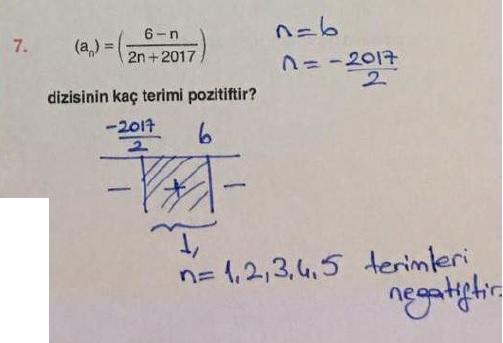 7. (aₙ) = ( 6 – n / 2n + 2017 )
n = 6
n = - 2017 / 2
dizisinin kaç terimi pozitiftir?
-2017 / 2   6
–   +   –
1,
n = 1, 2, 3, 4, 5 terimleri
negatiftir.